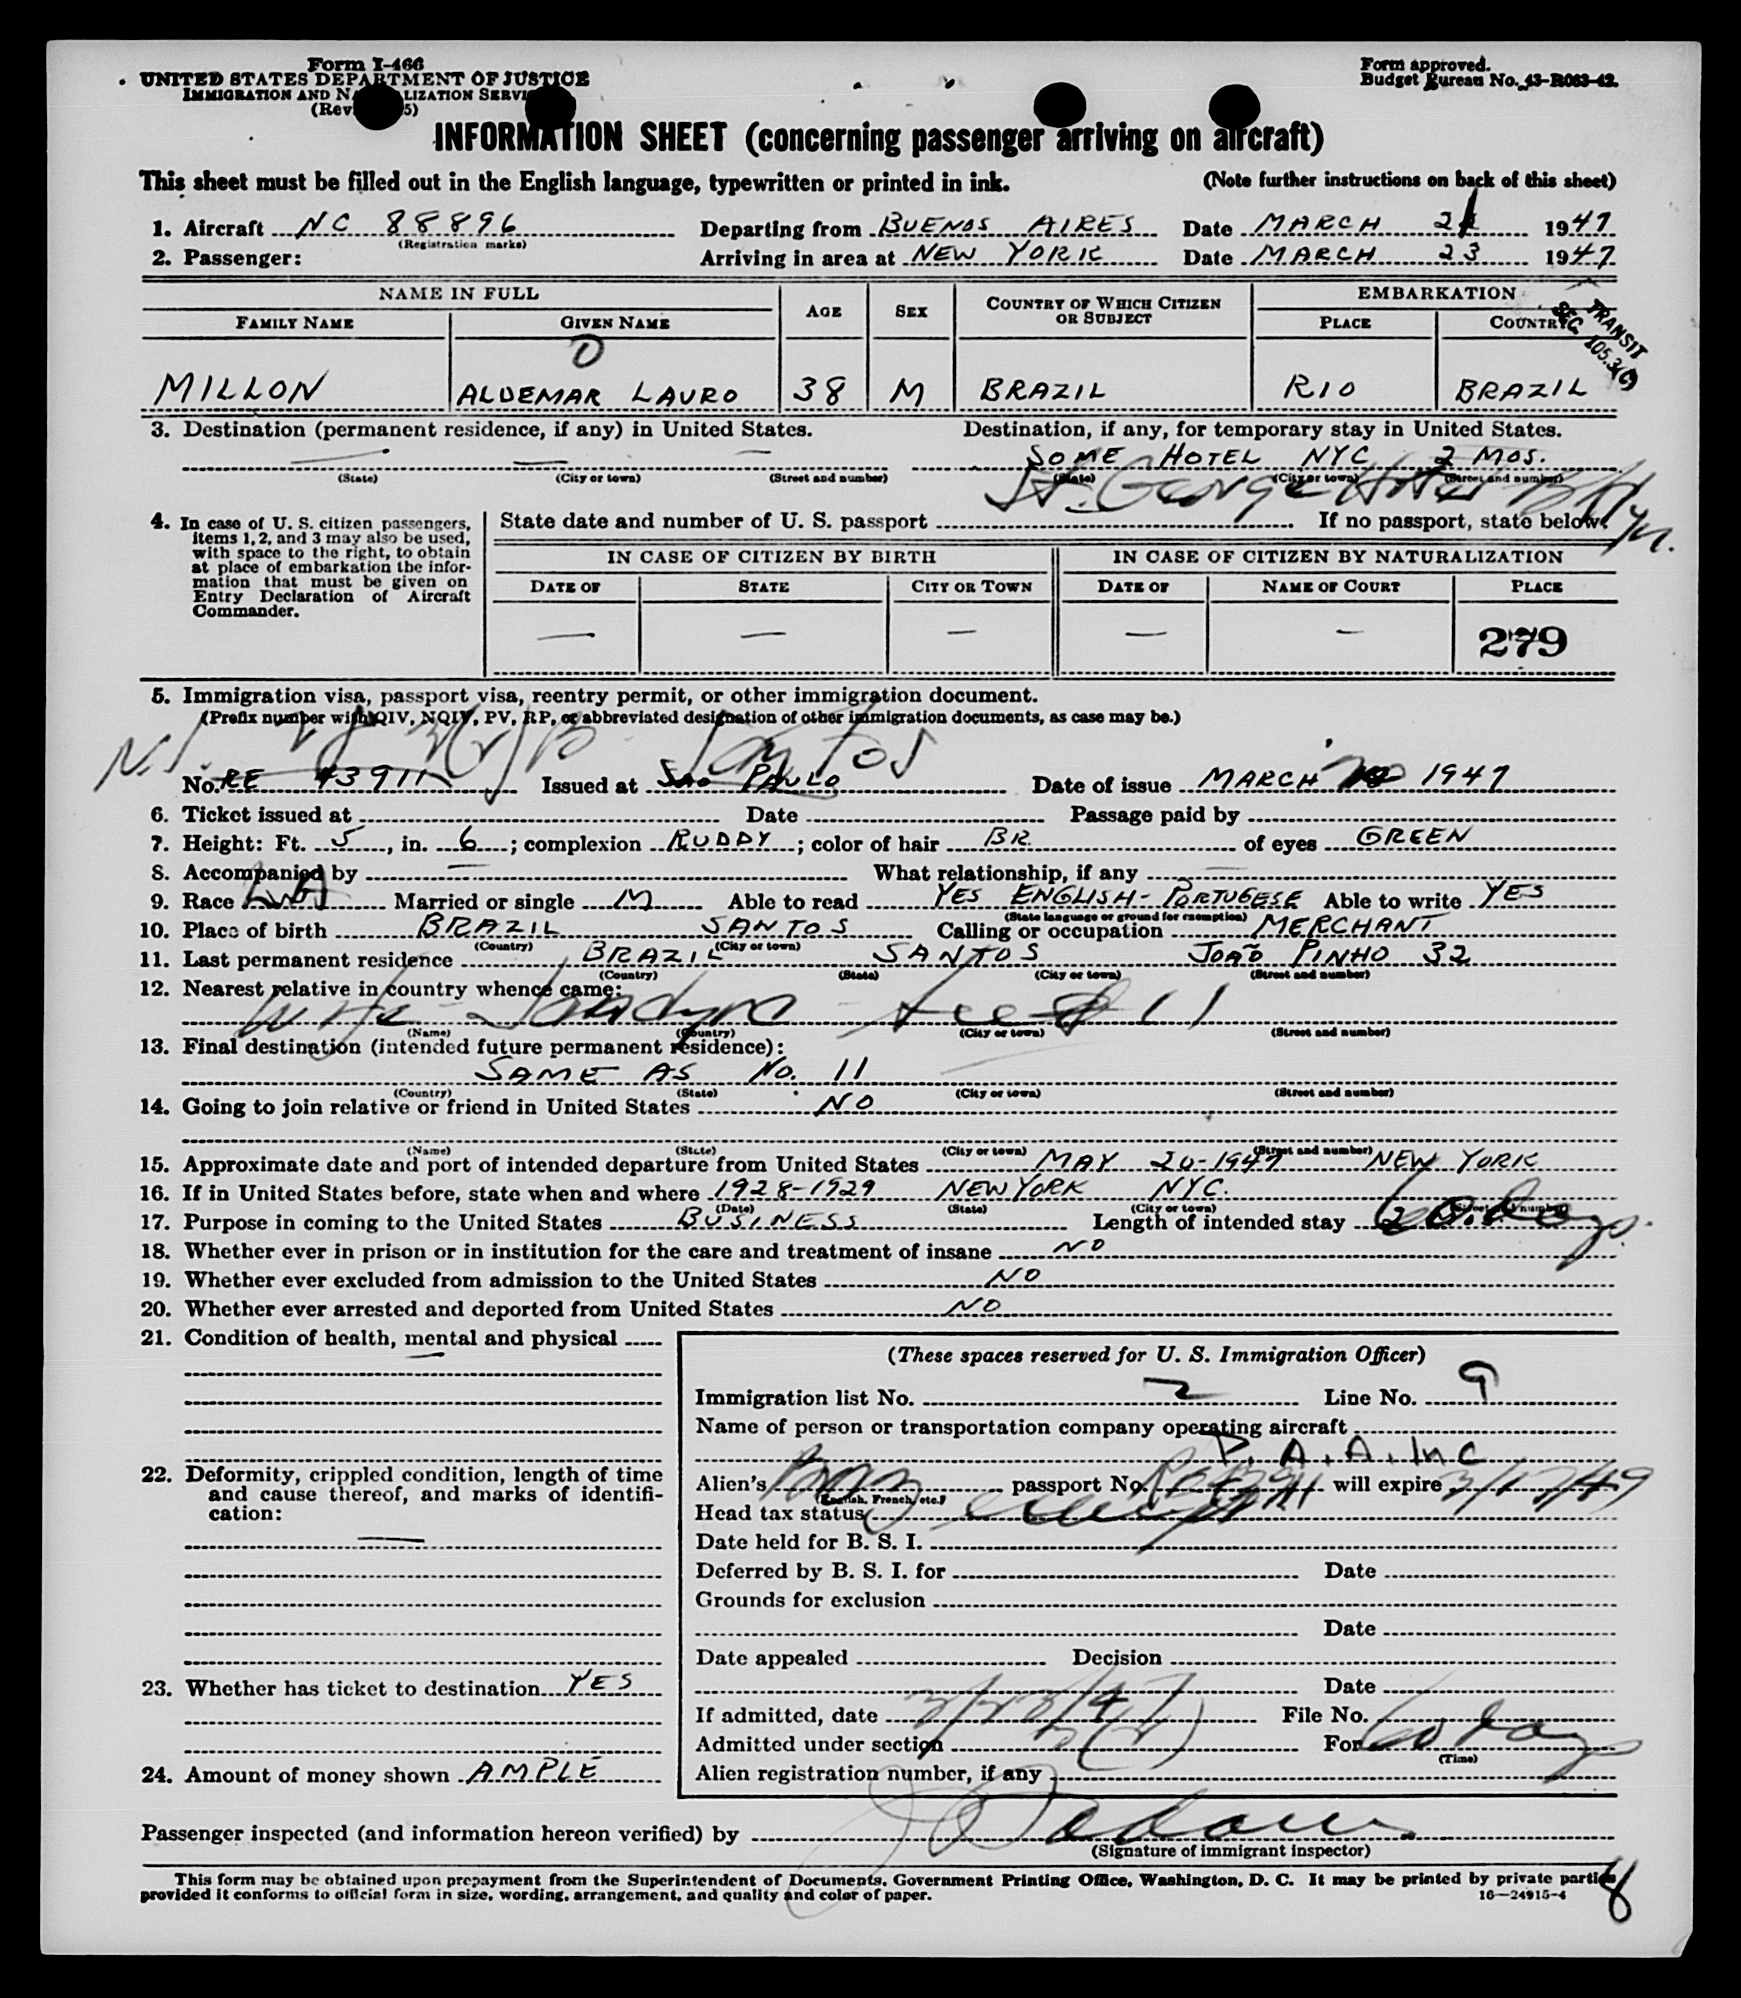 Form I-466
UNITED STATES DEPARTMENT OF JUSTICE
IMMIGRATION AND NATURALIZATION SERVICE
(Rev. 5)
Form approved.
Budget Bureau No. 43-R083-42.
INFORMATION SHEET (concerning passenger arriving on aircraft)
This sheet must be filled out in the English language, typewritten or printed in ink. (Note further instructions on back of this sheet)
1. Aircraft NC 88896 Departing from BUENOS AIRES Date MARCH 21 1947
(Registration marks)
2. Passenger: Arriving in area at NEW YORK Date MARCH 23 1947
NAME IN FULL AGE SEX COUNTRY OF WHICH CITIZEN OR SUBJECT EMBARKATION
FAMILY NAME GIVEN NAME PLACE COUNTRY
TRANSIT
SEC. 105.3(C)
O
MILLON ALDEMAR LAURO 38 M BRAZIL RIO BRAZIL
3. Destination (permanent residence, if any) in United States. Destination, if any, for temporary stay in United States.
— — — SOME HOTEL NYC 2 MOS.
(State) (City or town) (Street and number) (State) (City or town) (Street and number)
St. George Hotel Bklyn.
4. In case of U. S. citizen passengers, items 1, 2, and 3 may also be used, with space to the right, to obtain at place of embarkation the information that must be given on Entry Declaration of Aircraft Commander.
State date and number of U. S. passport If no passport, state below:
IN CASE OF CITIZEN BY BIRTH IN CASE OF CITIZEN BY NATURALIZATION
DATE OF STATE CITY OR TOWN DATE OF NAME OF COURT PLACE
— — — — — 279
5. Immigration visa, passport visa, reentry permit, or other immigration document.
(Prefix number with QIV, NQIV, PV, RP, or abbreviated designation of other immigration documents, as case may be.)
Santos
No. RE 43911 Issued at SAO PAULO Date of issue MARCH 1947
6. Ticket issued at Date Passage paid by
7. Height: Ft. 5, in. 6; complexion RUDDY; color of hair BR. of eyes GREEN
8. Accompanied by — What relationship, if any —
9. Race Married or single M Able to read YES ENGLISH-PORTUGESE Able to write YES
(State language or ground for exemption)
10. Place of birth BRAZIL SANTOS Calling or occupation MERCHANT
(Country) (City or town)
11. Last permanent residence BRAZIL SANTOS JOAÕ PINHO 32
(Country) (State) (City or town) (Street and number)
12. Nearest relative in country whence came:
Wife - see # 11
(Name) (Country) (City or town) (Street and number)
13. Final destination (intended future permanent residence):
SAME AS NO. 11
(Country) (State) (City or town) (Street and number)
14. Going to join relative or friend in United States NO
(Name) (State) (City or town) (Street and number)
15. Approximate date and port of intended departure from United States MAY 20-1947 NEW YORK
16. If in United States before, state when and where 1928-1929 NEW YORK NYC.
(Date) (State) (City or town) (Street and number)
17. Purpose in coming to the United States BUSINESS Length of intended stay 60 days.
18. Whether ever in prison or in institution for the care and treatment of insane NO
19. Whether ever excluded from admission to the United States NO
20. Whether ever arrested and deported from United States NO
21. Condition of health, mental and physical
—
22. Deformity, crippled condition, length of time and cause thereof, and marks of identification:
—
23. Whether has ticket to destination YES
24. Amount of money shown AMPLE
(These spaces reserved for U. S. Immigration Officer)
Immigration list No. 2 Line No. 9
Name of person or transportation company operating aircraft
P. A. A. Inc
Alien's passport No. will expire 3/17/49
(English, French, etc.)
Head tax status
Date held for B. S. I.
Deferred by B. S. I. for Date
Grounds for exclusion
Date
Date appealed Decision
Date
If admitted, date 3/23/47 File No.
Admitted under section 3(2) For 60 days
(Time)
Alien registration number, if any
Passenger inspected (and information hereon verified) by
(Signature of immigrant inspector)
This form may be obtained upon prepayment from the Superintendent of Documents, Government Printing Office, Washington, D. C. It may be printed by private parties
provided it conforms to official form in size, wording, arrangement, and quality and color of paper. 16—24915-4
8